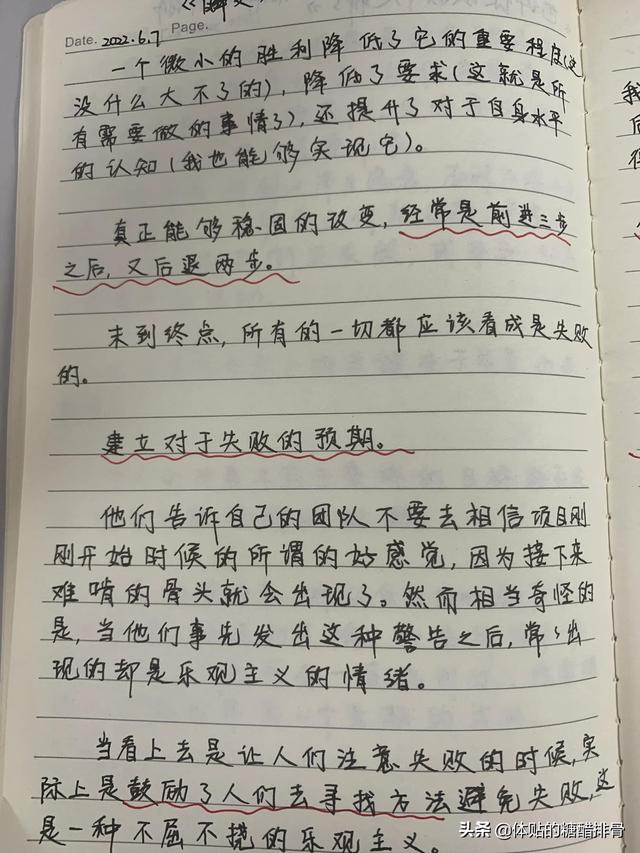 Date. 2022.6.7 Page.
一个微小的胜利降低了它的重要程度(这
没什么大不了的),降低了要求(这就是所
有需要做的事情了),还提升了对于自身水平
的认知(我也能够实现它)。
真正能够稳固的改变,经常是前进三步
之后,又后退两步。
未到终点,所有的一切都应该看成是失败
的。
建立对于失败的预期。
他们告诉自己的团队不要去相信项目刚
刚开始时候的所谓的好感觉,因为接下来
难啃的骨头就会出现了。然而相当奇怪的
是,当他们事先发出这种警告之后,常常出
现的却是乐观主义的情绪。
当看上去是让人们注意失败的时候,实
际上是鼓励了人们去寻找方法避免失败,这
是一种不屈不挠的乐观主义。
头条 @体贴的糖醋排骨